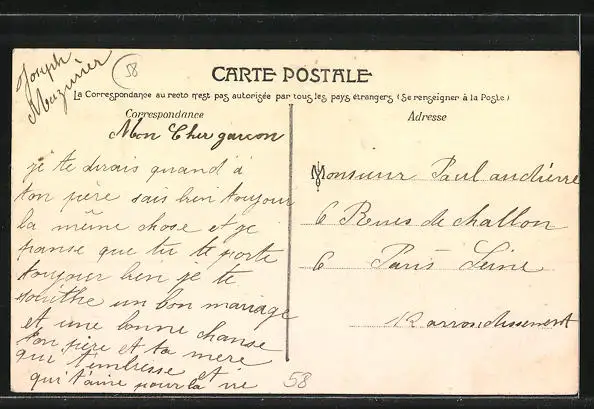 Joseph
Mazurier
58
CARTE POSTALE
La Correspondance au recto n'est pas autorisée par tous les pays étrangers (Se renseigner à la Poste)
Correspondance
Adresse
Mon Cher garcon
je te dirais quand à
ton père sais bien toujour
la même chose et je
panse que tu te porte
toujour bien je te
souithe un bon mariage
et une bonne chanse
ton père et ta mere
qui t'embresse et
qui t'aime pour la vie
58
Monsieur Paul audierre
6 Reues de challon
6 Paris Seine
12 arrondissement